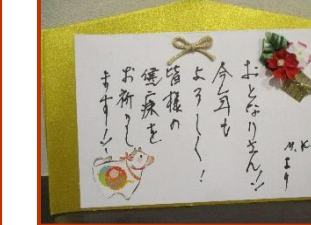 おとなりさん!!
今年も
よろしく!
皆様の
健康を
お祈りし
ます!!
M.K
より